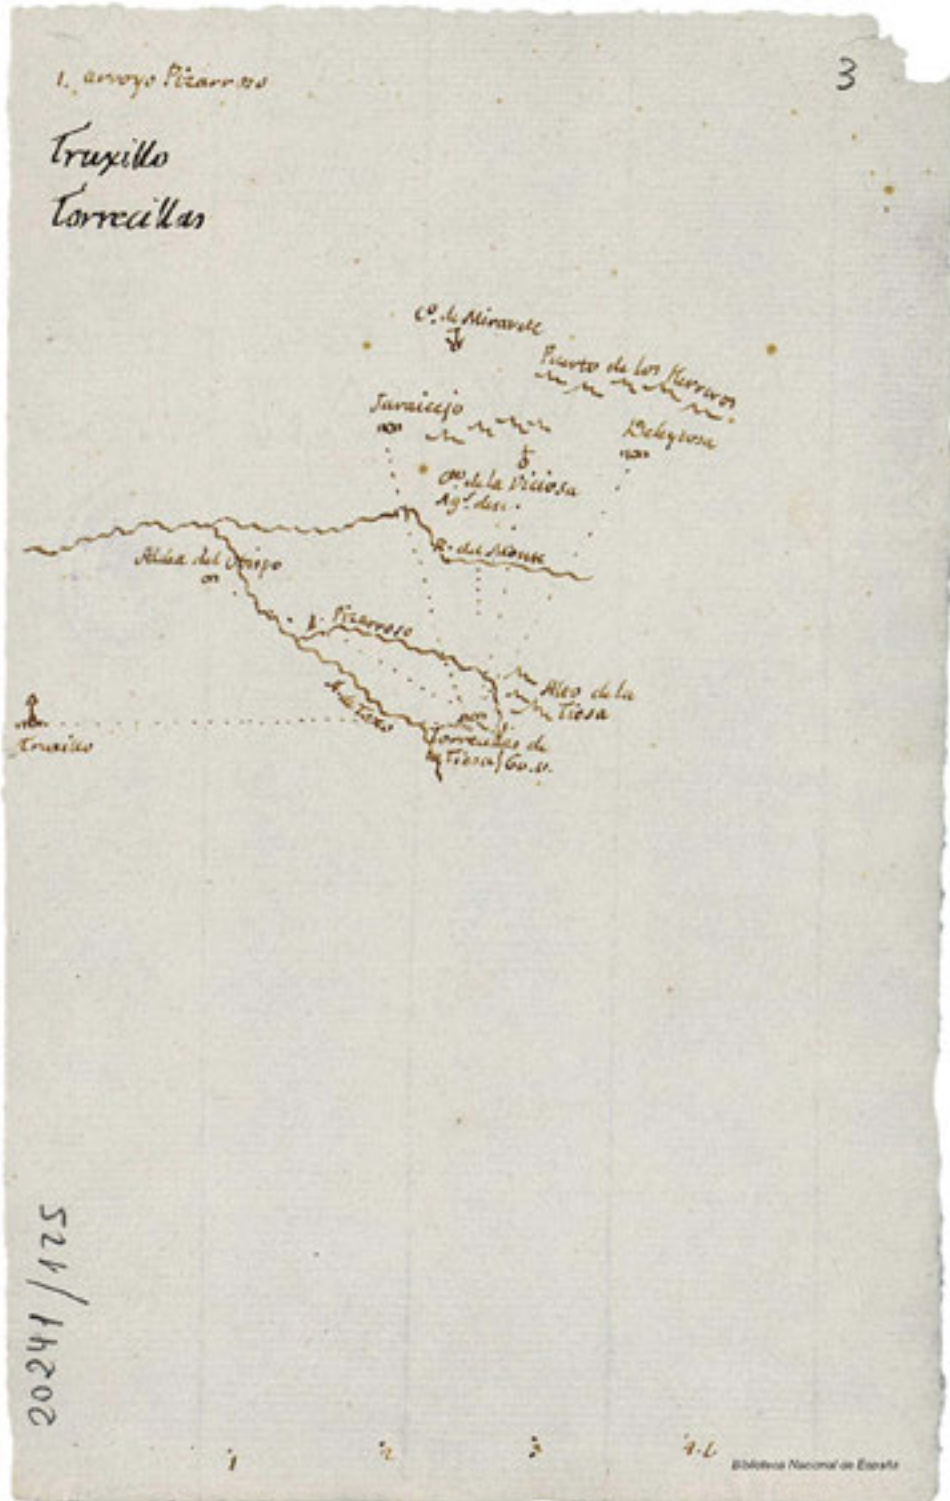 3
1. arroyo Pizarroso
Truxillo
Torrecillas
Co. de Miravete
Puerto de los Herreros
Jaraicejo
Deleytosa
de la Viciosa
R. del Monte
Aldea del Obispo
1. Pizarroso
Alto de la
Tiesa
R. de Tozo
Truxillo
Torrecillas de
la Tiesa
20241/125
1 2 3 4 L
Biblioteca Nacional de España